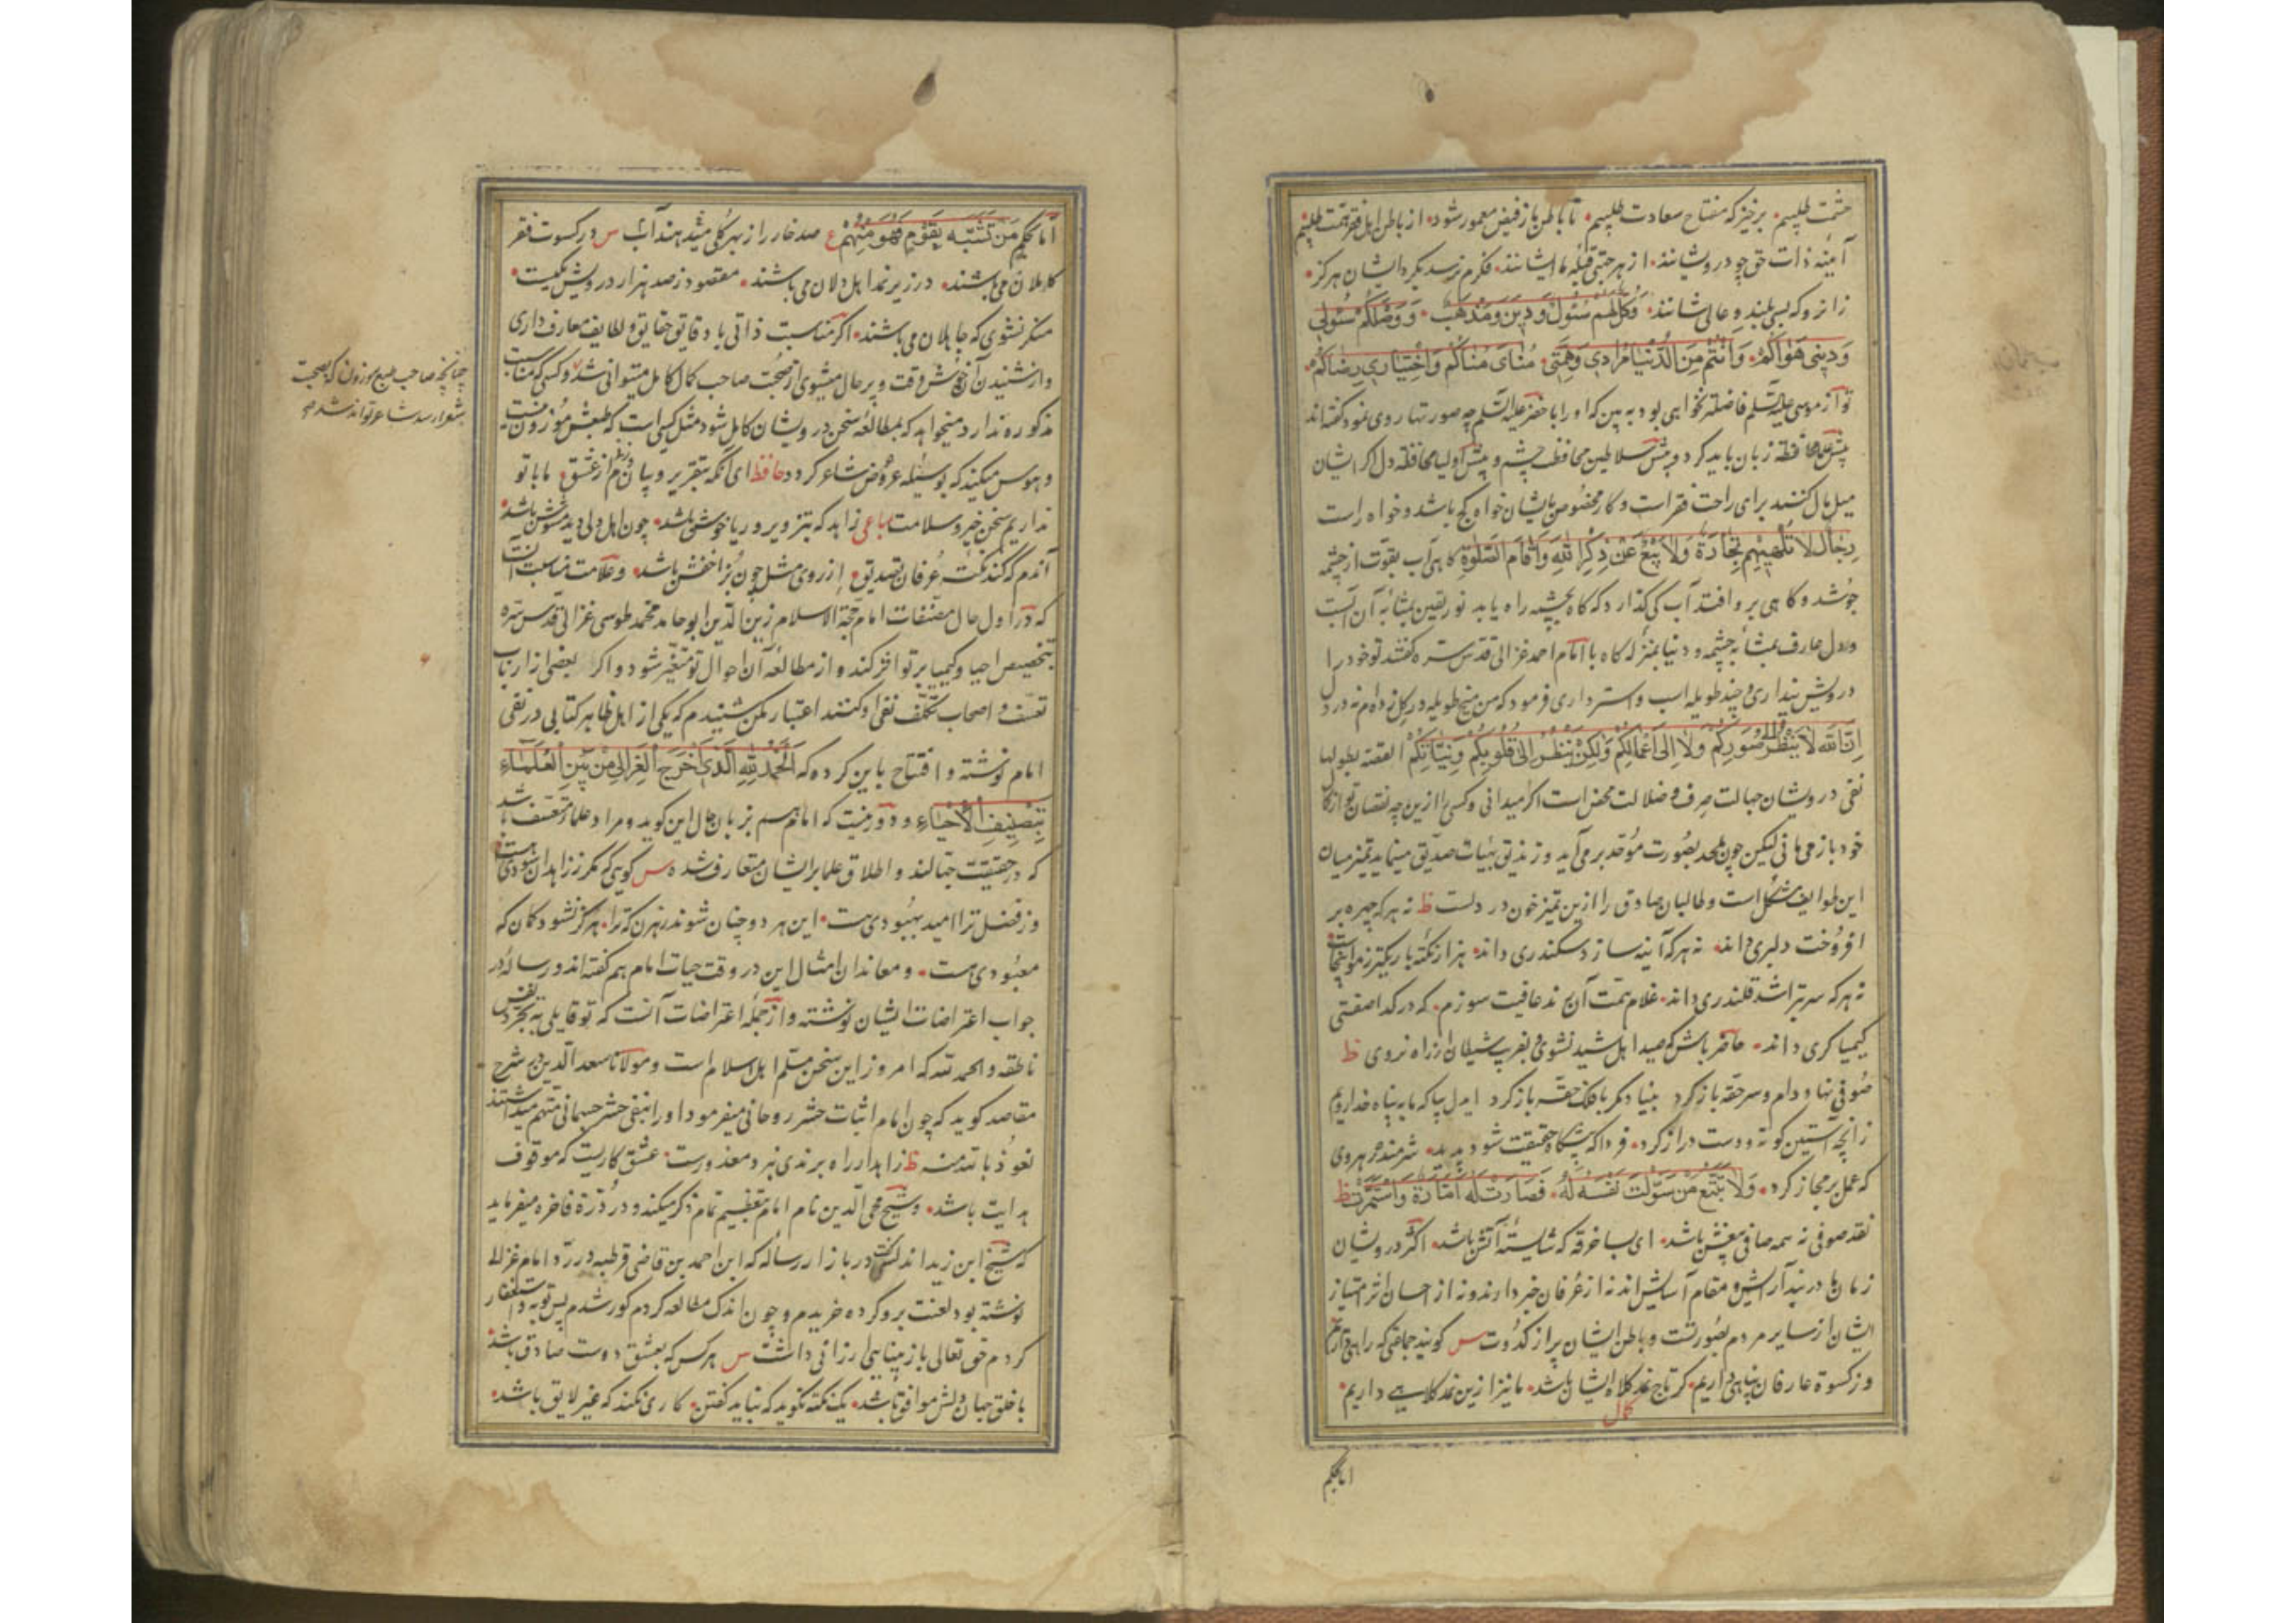 حشمت طلبیم. برخیز که مفتاح سعادت طلبیم. تا باطن ما ز فیض معمور شود. از باطن اهل فقر همت طلبیم
آیینه ذات حق چو درویشانند. از هر جهتی قبله ما ایشانند. فکرم نرسد بگرد ایشان هرگز.
زانرو که بسی بلند و عالی شانند. وَکُلٌّ لَهُم سُئُولٌ وَ دِینٌ وَمَذهَبٌ. وَ وَصْلُکُم سُئُولِی
وَدِینِی هَوَاکُمُ. وَاَنْتُم مِنَ الدُّنْیَا مُرَادِی وَهِمَّتِی. مُنَایَ مُنَاکُم وَاخْتِیَارِی رِضَاکُمُ.
تو از موسی علیه السلم فاضلتر نخواهی بود به بین که او را با خضر علیه السلم چه صورتها روی نمود گفته‌اند
پیش علما محافظة زبان باید کرد و پیش سلاطین محافظت چشم و پیش اولیا محافظه دل اگر ایشان
میل بمال کنند برای راحت فقر است و کار مخصوص بایشان خواه کج باشد و خواه راست
رِجَالٌ لَا تُلْهِیهِم تِجَارَةٌ وَلَا بَیْعٌ عَن ذِکْرِ اللّٰهِ وَاِقَامِ الصَّلٰوةِ گاهی آب بقوت از چشمه
جوشد و گاهی برو افتد آب کی گذارد که کاه بچشمه راه یابد نور یقین بمثابه آن آبست
ودل عارف بمثابه چشمه و دنیا بمنزله کاه با امام احمد غزالی قدس سره گفتند تو خود را
درویش پنداری و چند طویله اسب و استر داری فرمود که من میخ طویله در گل زده‌ام نه در دل
اِنَّ اللّٰهَ لَا یَنْظُرُ اِلٰی صُوَرِکُم وَلَا اِلٰی اَعْمَالِکُم وَلٰکِنْ یَنْظُرُ اِلٰی قُلُوبِکُم وَنِیَّاتِکُم القصه بطولها
نفی درویشان جهالت صرف و ضلالت محض است اگر میدانی و کسی را ازین چه نقصان تو از کمال
خود باز می‌مانی لیکن چون ملحد بصورت موحد بر می‌آید و زندیق بهیئات صدیق مینماید تمیز میان
این طوایف مشکل است و طالبان صادق را ازین تمیز خون در دلست ظ نه هر که چهره بر
افروخت دلبری داند. نه هر که آینه سازد سکندری داند. هزار نکته باریکتر ز مو اینجاست
نه هر که سر بتراشد قلندری داند. غلام همت آن رند عافیت سوزم. که در گدا صفتی
کیمیا گری داند. حاضر باش که صید اهل شید نشوی و بفریب شیطان از راه نروی ظ
صوفی نهاد دام و سر حقه باز کرد بنیاد مکر با فلک حقه باز کرد ای دل بیا که ما به پناه خدا رویم
زانچه آستین کوته و دست دراز کرد. فردا که پیشگاه حقیقت شود پدید. شرمنده رهروی
که عمل بر مجاز کرد. وَلَا تَتَّبِعْ مَن سَوَّلَتْ نَفْسُهُ لَهُ. فَصَارَتْ لَهُ اَمَّارَةً وَاسْتَمَرَّتْ ظ
نقد صوفی نه همه صافی بیغش باشد. ای بسا خرقه که شایسته آتش باشد. اکثر درویشان
زمان ما در بند آرایش و مقام آسایش‌اند نه از عرفان خبر دارند و نه از احسان اثر امتیاز
ایشان از سایر مردم بصورتست و باطن ایشان پر از کدورت س گویند جماعتی که راهی داریم
وز کسوة عارفان پناهی داریم. گر تاج نمد کلاه ایشان باشد. ما نیز ازین نمد کلاهی داریم.
کمال
اما بحکم
اما بحکم مَن تَشَبَّهَ بِقَوْمٍ فَهُوَ مِنْهُم ع صد خار را ز بهر گلی میدهند آب س در کسوت فقر
کاملان می‌باشند. در زیر نمد اهل دلان می‌باشند. مقصود ز صد هزار درویش یکیست.
منکر نشوی که جاهلان می‌باشند. اگر مناسبت ذاتی با دقایق حقایق و لطایف معارف داری
واز شنیدن آن خوش وقت و پر حال میشوی از صحبت صاحب کمال کامل میتوانی شد و کسی که مناسبت
مذکوره ندارد و میخواهد که بمطالعه سخن درویشان کامل شود مثل کسی است که طبعش موزون نیست
و هوس میکند که بوسیله عروض شاعر گردد حافظ ای آنکه بتقریر و بیان دم زنی از عشق ما با تو
نداریم سخن خیر و سلامت رباعی زاهد که بتزویر و ریا خوش باشد. چون اهل دلی دید مشوش باشد.
آندم که کند نکته عرفان تصدیق. از روی مثل چون بز اخفش باشد. و علامت مناسبت آنست
که در اول حال مصنفات امام حجة الاسلام زین الدین ابو حامد محمد طوسی غزالی قدس سره
بتخصیص احیا و کیمیا بر تو اثر کند و از مطالعه آن احوال تو متغیر شود و اگر بعضی از ارباب
تعسف و اصحاب تکلف نفی او کنند اعتبار مکن شنیدم که یکی از اهل ظاهر کتابی در نفی
امام نوشته و افتتاح باین کرده که اَلْحَمْدُ لِلّٰهِ الَّذِی اَخْرَجَ الْغَزَالِی مِنْ بَیْنِ الْعُلَمَاءِ
بِتَصْنِیفِ الْاِحْیَاءِ و دور نیست که امام هم بزبان حال این گوید و مراد علما متعسف باشد
که در حقیقت جهالند و اطلاق علما بر ایشان متعارف شده س گویی که مگر ز زاهدان سودی هست
وز فضل ترا امید بهبودی هست. این هر دو چنان شوند رهزن که ترا. هرگز نشود گمان که
معبودی هست. و معاندان امثال این در وقت حیات امام هم گفته‌اند و رساله در
جواب اعتراضات ایشان نوشته و از جمله اعتراضات آنست که تو قایلی به تجرد نفس
ناطقه و الحمد لله که امروز این سخن مسلم اهل اسلام است و مولانا سعد الدین در شرح
مقاصد گوید که چون امام اثبات حشر روحانی میفرمود او را بنفی حشر جسمانی متهم میداشتند
نعوذ بالله منه ظ زاهد ار راه برندی نبرد معذورست. عشق کاریست که موقوف
هدایت باشد. و شیخ محی الدین نام امام بتعظیم تمام ذکر میکند و در درة فاخره میفرماید
که شیخ ابن زید اندلسی در بازار رساله که ابن احمد بن قاضی قرطبه در رد امام غزالی
نوشته بود لعنت برو کرده خریدم و چون اندک مطالعه کردم کور شدم پس توبه و استغفار
کردم حق تعالی باز بینایی ارزانی داشت س هر کس که بعشق دوست صادق باشد.
با خلق جهان دلش موافق باشد. یک نکته نگوید که نباید گفتن. کاری نکند که غیر لایق باشد.
چنانچه صاحب طبع موزون که بصحبت
شعرا رسد شاعر تواند شد صح